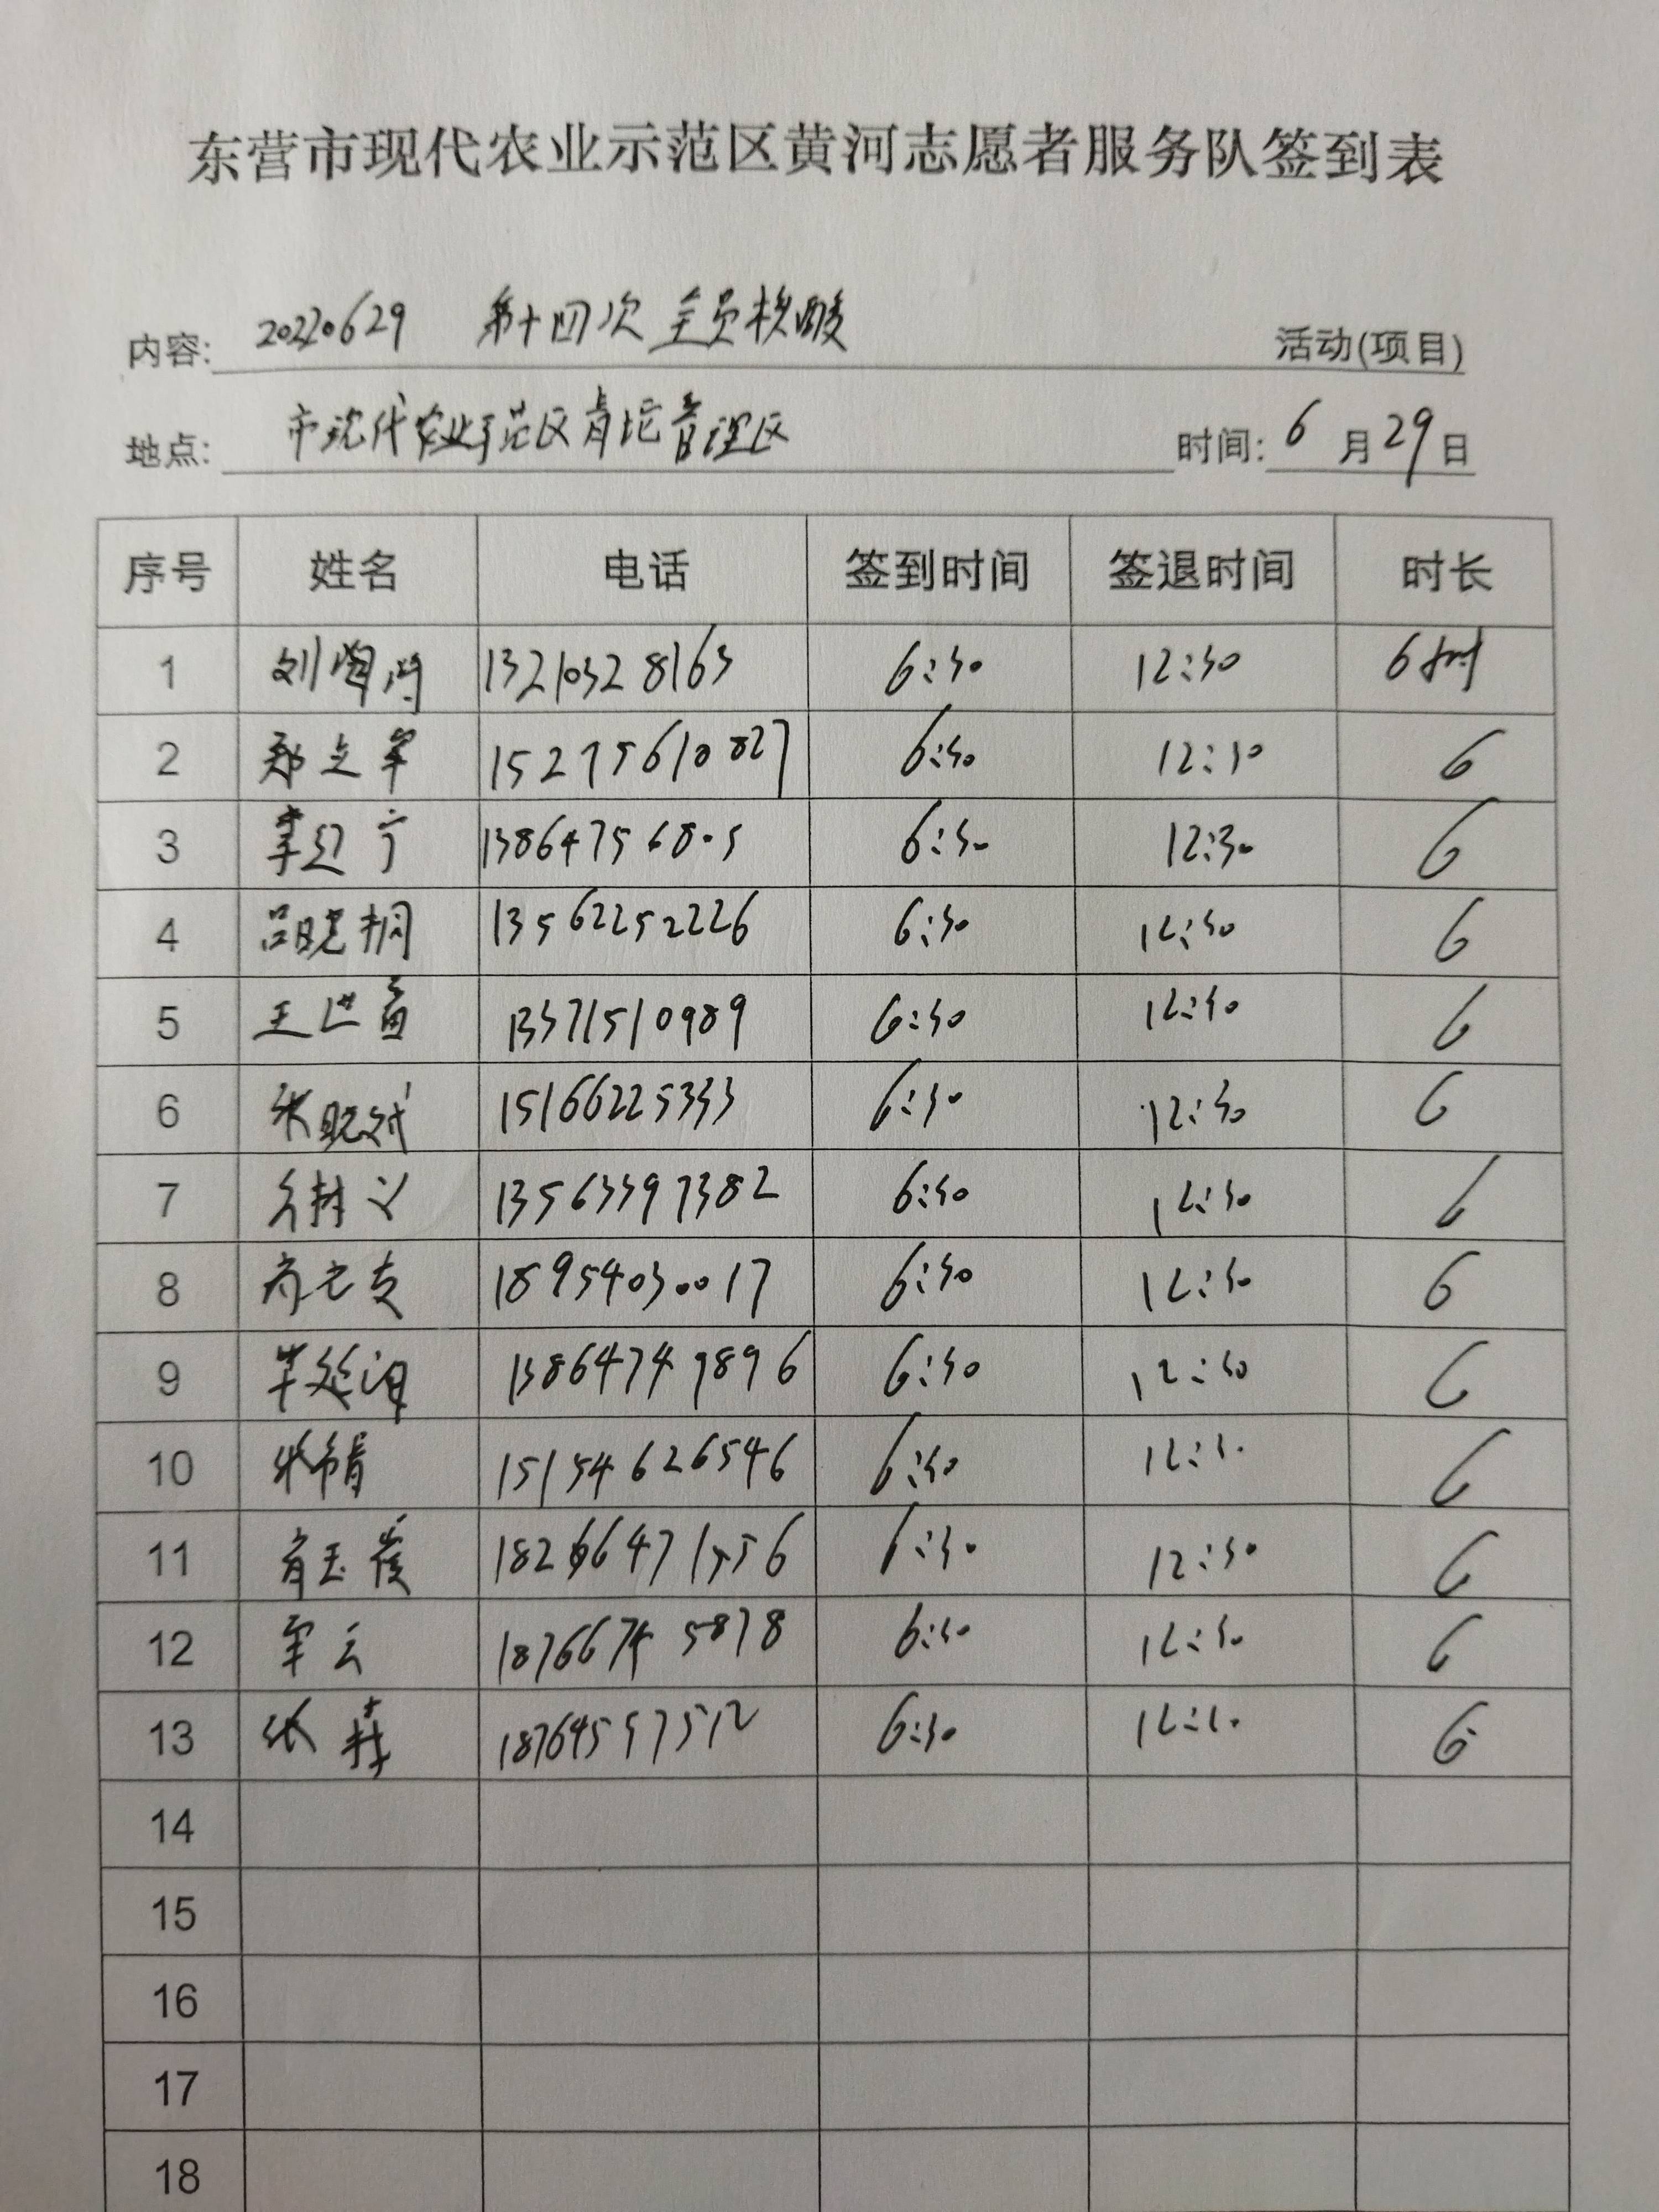 东营市现代农业示范区黄河志愿者服务队签到表
内容: 20220629 第十四次全员核酸 活动(项目)
地点: 市现代农业示范区青坨管理区 时间: 6月29日
序号 姓名 电话 签到时间 签退时间 时长
1 刘 13210328163 6:30 12:30 6小时
2 郑立军 6:30 12:30 6
3 李辽宁 13864756805 6:30 12:30 6
4 吕晓桐 13562252226 6:30 12:30 6
5 王世 13371510989 6:30 12:30 6
6 张晓斌 15166225333 6:30 12:30 6
7 13563397382 6:30 12:30 6
8 18954030017 6:30 12:30 6
9 13864749896 6:30 12:30 6
10 张希肖 15154626546 6:30 12:30 6
11 18266471556 6:30 12:30 6
12 6:30 12:30 6
13 张 18764597512 6:30 12:30 6
14
15
16
17
18